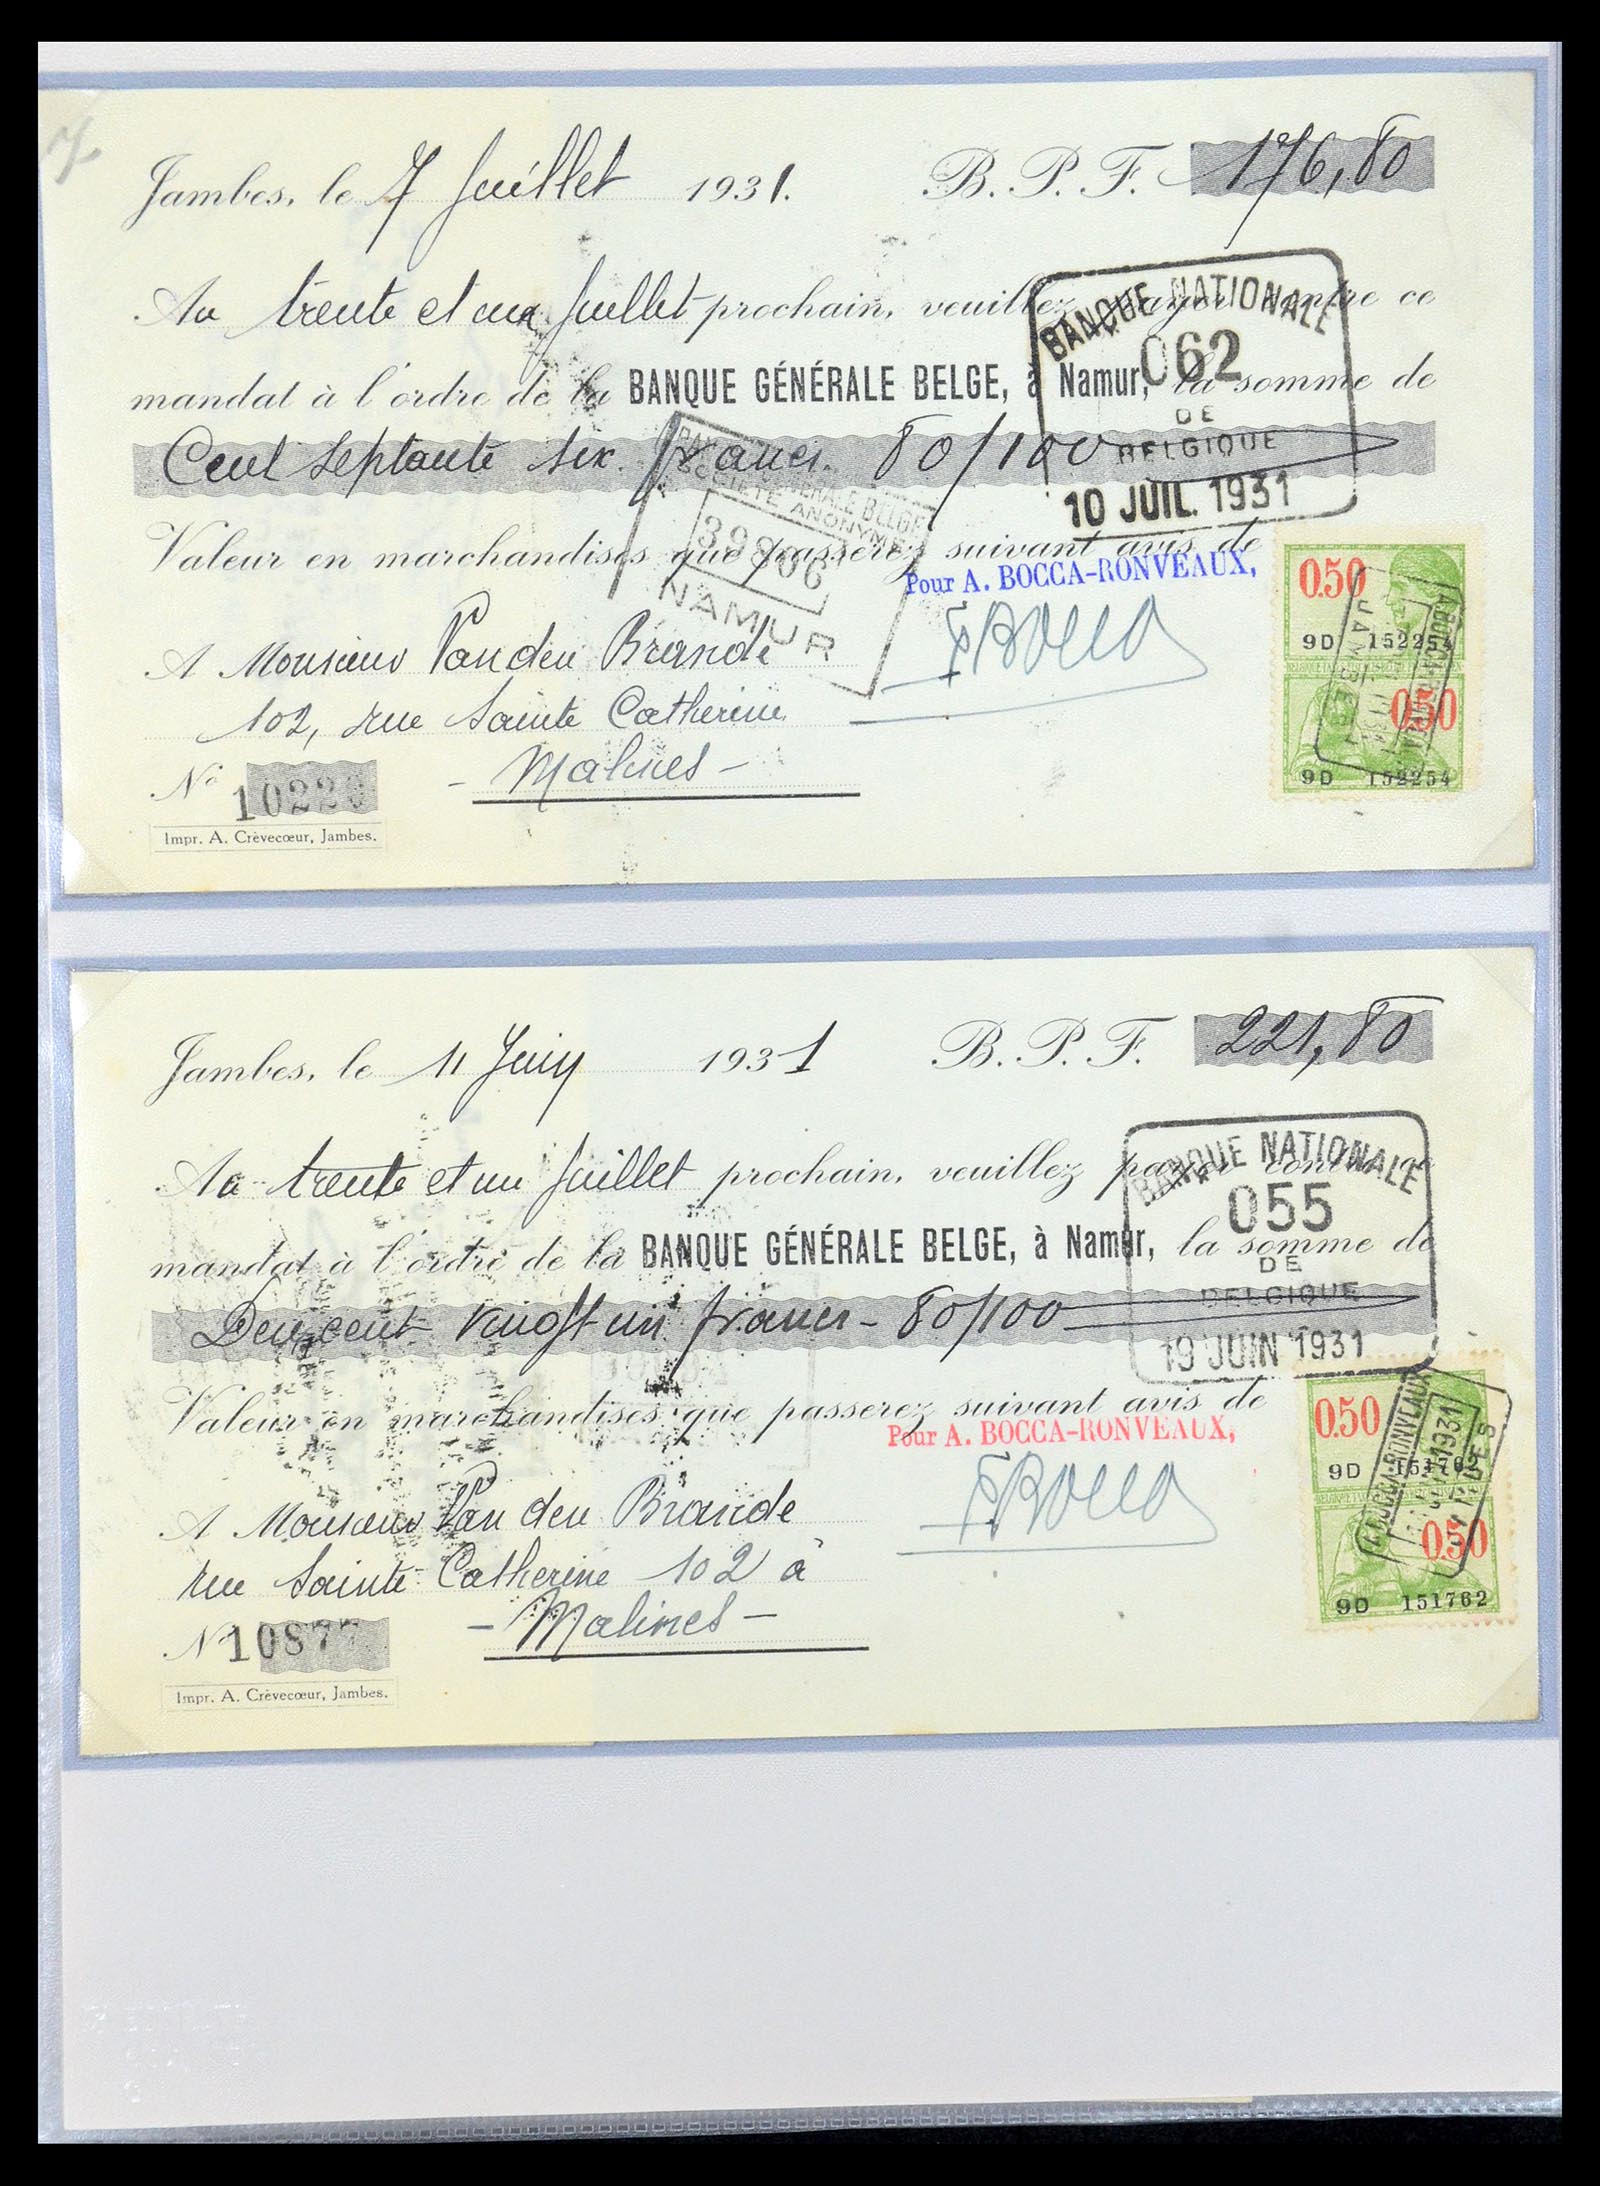 Jambes, le 7 Juillet 1931. B. P. F. 176,80
Au trente et un Juillet prochain, veuillez payer contre ce
mandat à l'ordre de la BANQUE GÉNÉRALE BELGE, à Namur, la somme de
Cent septante six francs 80/100
Valeur en marchandises que passerez suivant avis de
Pour A. BOCCA-RONVEAUX,
FBocca
A Monsieur Van den Brande
102, rue Sainte Catherine
- Malines -
Nº
Impr. A. Crèvecœur, Jambes.
BANQUE NATIONALE
062
DE
BELGIQUE
10 JUIL. 1931
GÉNÉRALE BELGE
SOCIÉTÉ ANONYME
NAMUR
0.50
9D 152254
0.50
9D 152254
Jambes, le 11 Juin 1931 B. P. F. 221,80
Au trente et un Juillet prochain, veuillez payer contre ce
mandat à l'ordre de la BANQUE GÉNÉRALE BELGE, à Namur, la somme de
Deux cent vingt un francs - 80/100
Valeur en marchandises que passerez suivant avis de
Pour A. BOCCA-RONVEAUX,
FBocca
A Monsieur Van den Brande
rue Sainte Catherine 102 à
- Malines -
Nº 10877
Impr. A. Crèvecœur, Jambes.
BANQUE NATIONALE
055
DE
BELGIQUE
19 JUIN 1931
0.50
9D 151762
0.50
9D 151762